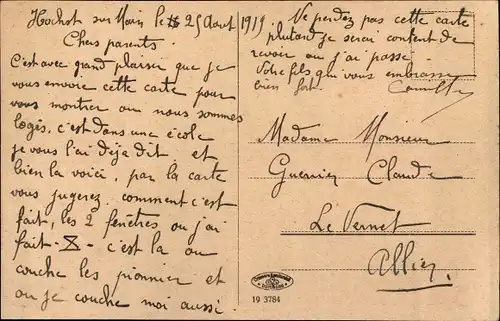 Hochst sur Main le 25 Aout 1919
Chers parents.
C'est avec grand plaisir que je
vous envoie cette carte pour
vous montrer ou nous sommes
logés, c'est dans une école
je vous l'ai déja dit et
bien la voici, par la carte
vous jugerez comment c'est
fait, les 2 fenêtres ou j'ai
fait -X- c'est la ou
couche les pionnier et
ou je couche moi aussi.
Ne perdez pas cette carte
plutard je serai content de
revoir ou j'ai passé.
Votre fils qui vous embrasse
bien fort.
Madame Monsieur
Guerrier Claude
Le Vernet
Allier.
19 3784